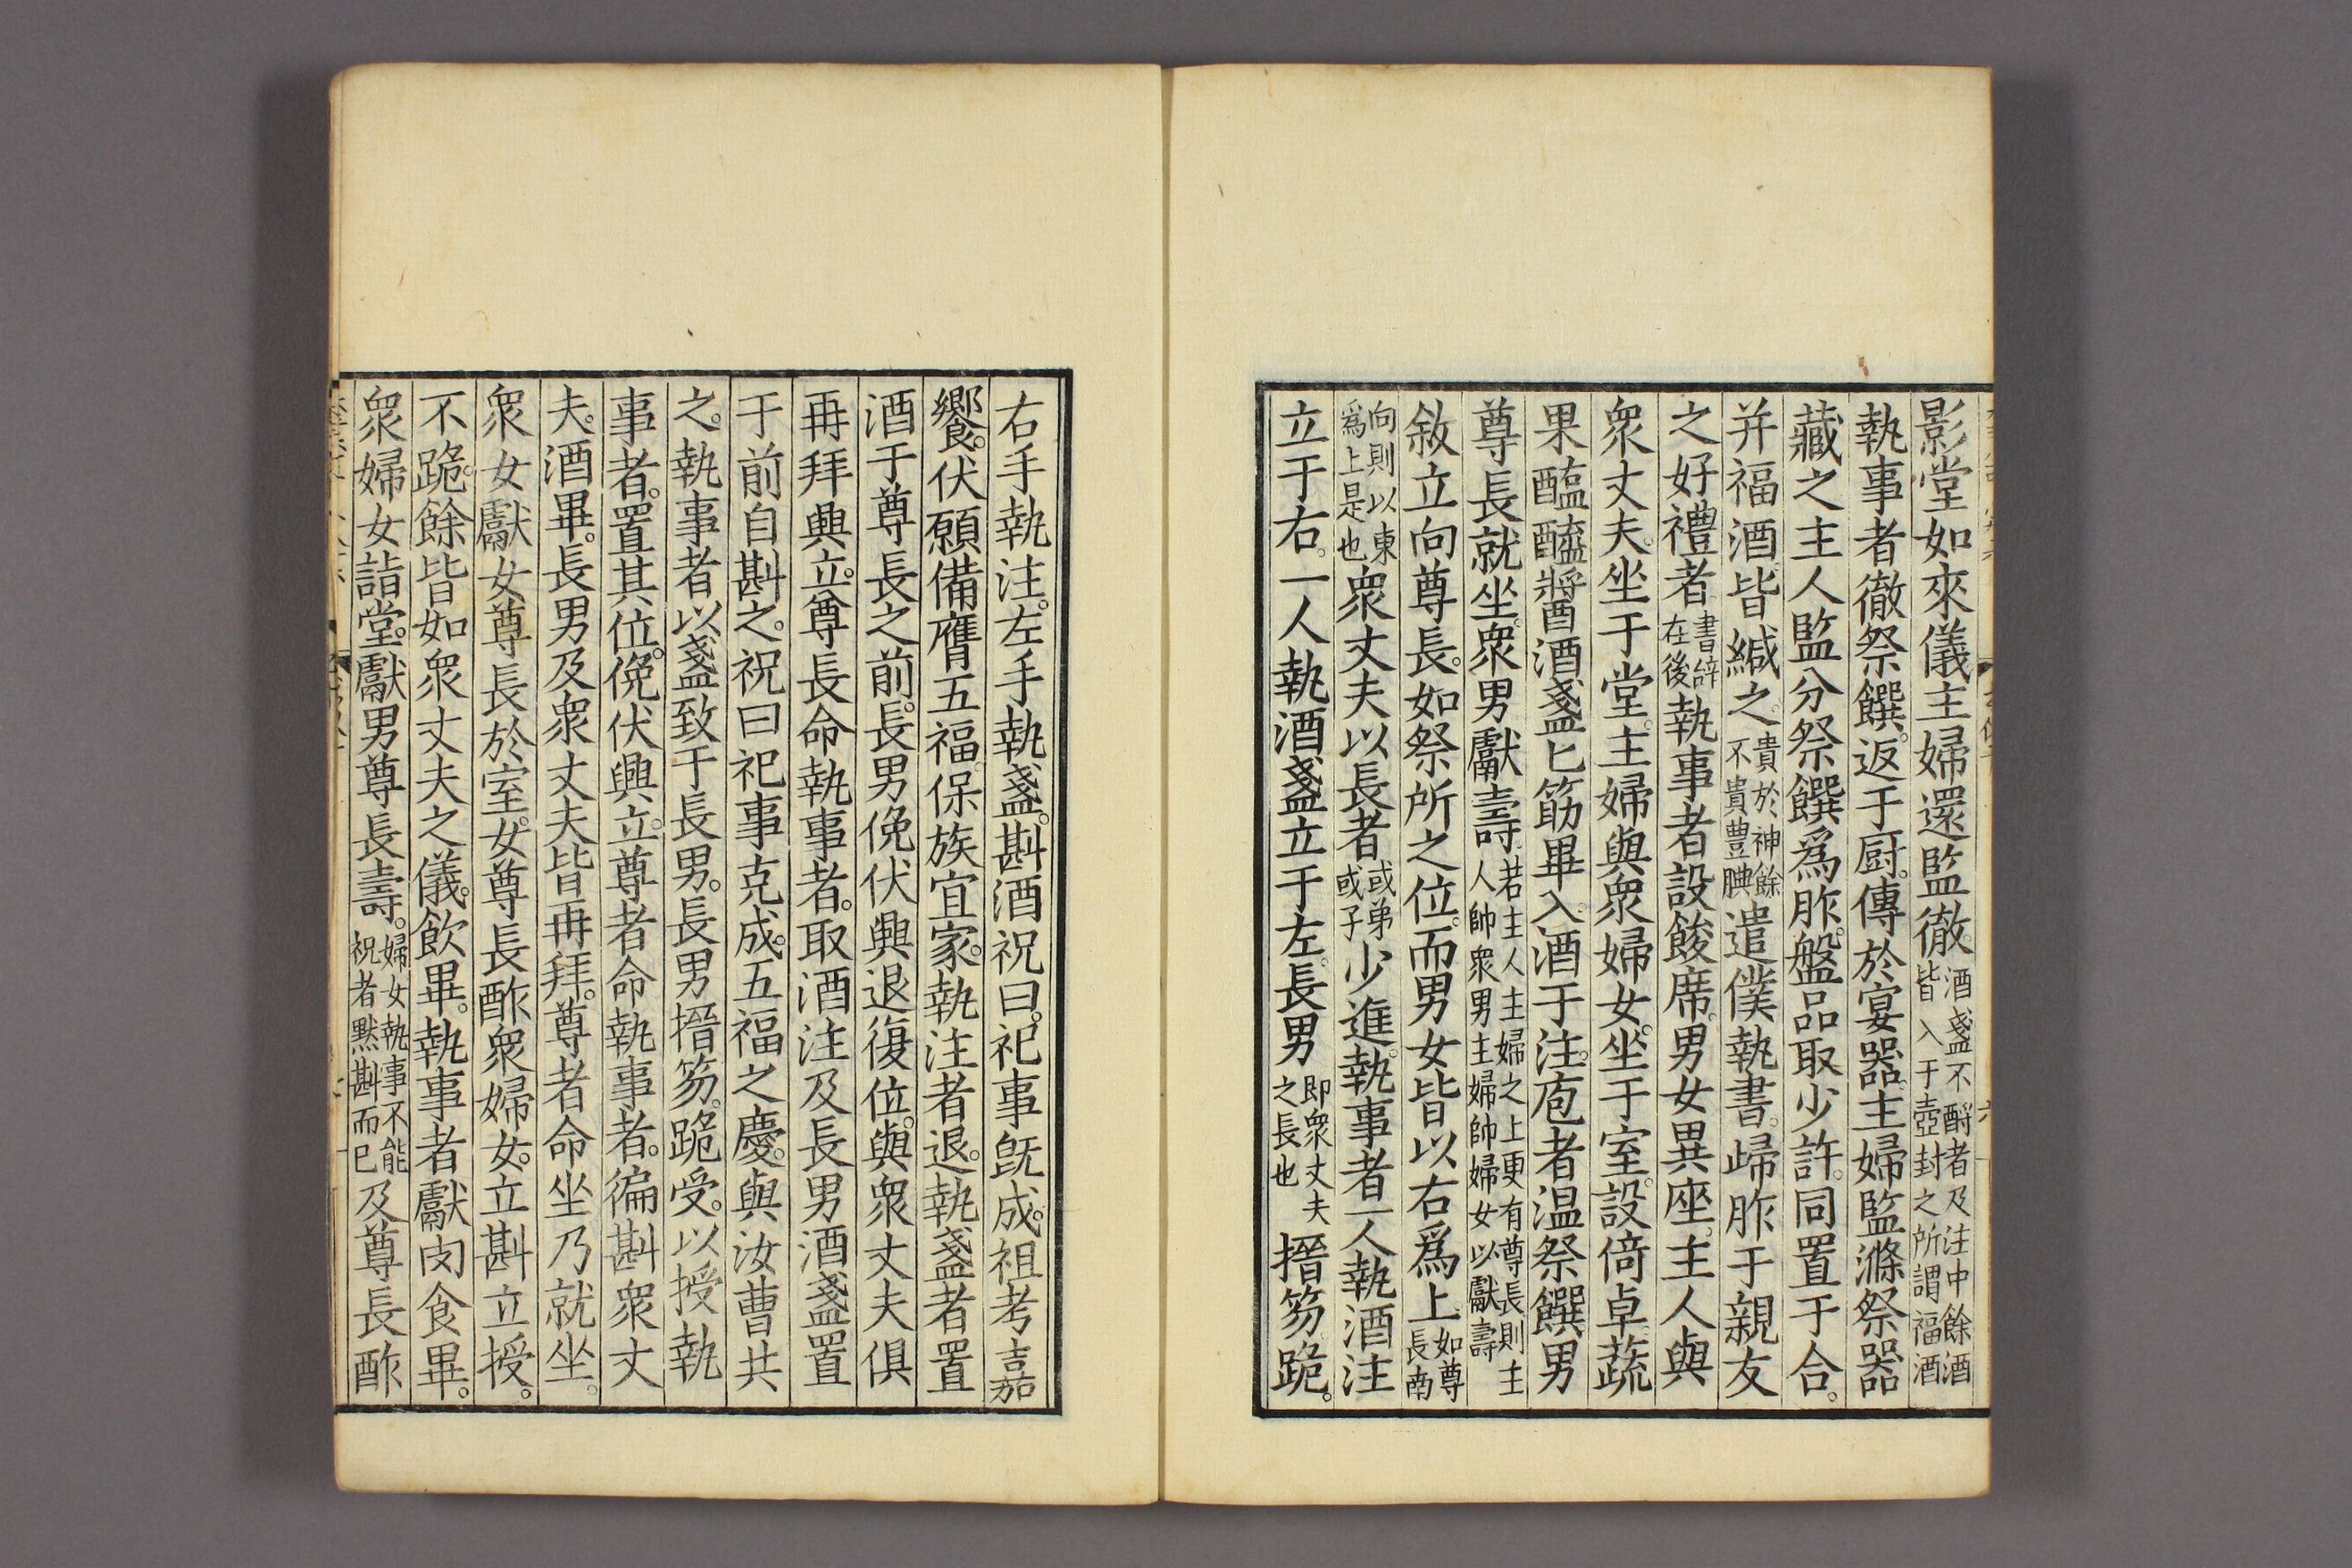 影堂如來儀主婦還監徹酒盞不酹者及注中餘酒皆入于壺封之所謂福酒
執事者徹祭饌。返于厨。傳於宴器。主婦監滌祭器
藏之主人監分祭饌爲胙。盤品取少許。同置于合。
并福酒皆緘之。貴於神餘不貴豊腆遣僕執書。歸胙于親友
之好禮者書辭在後執事者設餕席。男女異座。主人與
衆丈夫。坐于堂。主婦與衆婦女。坐于室。設倚卓蔬
果醢醯醬酒盞匕筯畢入酒于注。庖者温祭饌男
尊長就坐。衆男獻壽。若主人主婦之上更有尊長則主人帥衆男主婦帥婦女以獻壽
敘立向尊長。如祭所之位。而男女皆以右爲上如尊長南
向則以東爲上是也衆丈夫以長者或弟或子少進。執事者一人執酒注
立于右。一人執酒盞立于左。長男即衆丈夫之長也搢笏跪。
右手執注。左手執盞。斟酒祝曰。祀事旣成。祖考嘉
饗。伏願備膺五福。保族宜家。執注者退。執盞者置
酒于尊長之前。長男俛伏興退復位。與衆丈夫俱
再拜興立。尊長命執事者。取酒注及長男酒盞置
于前自斟之。祝曰祀事克成。五福之慶。與汝曹共
之。執事者以盞致于長男。長男搢笏。跪受。以授執
事者。置其位。俛伏興立。尊者命執事者。徧斟衆丈
夫。酒畢。長男及衆丈夫皆再拜。尊者命坐乃就坐。
衆女獻女尊長於室。女尊長酢衆婦女。立斟立授。
不跪。餘皆如衆丈夫之儀。飲畢。執事者獻肉食畢。
衆婦女詣堂。獻男尊長壽。婦女執事不能祝者黙斟而已及尊長酢